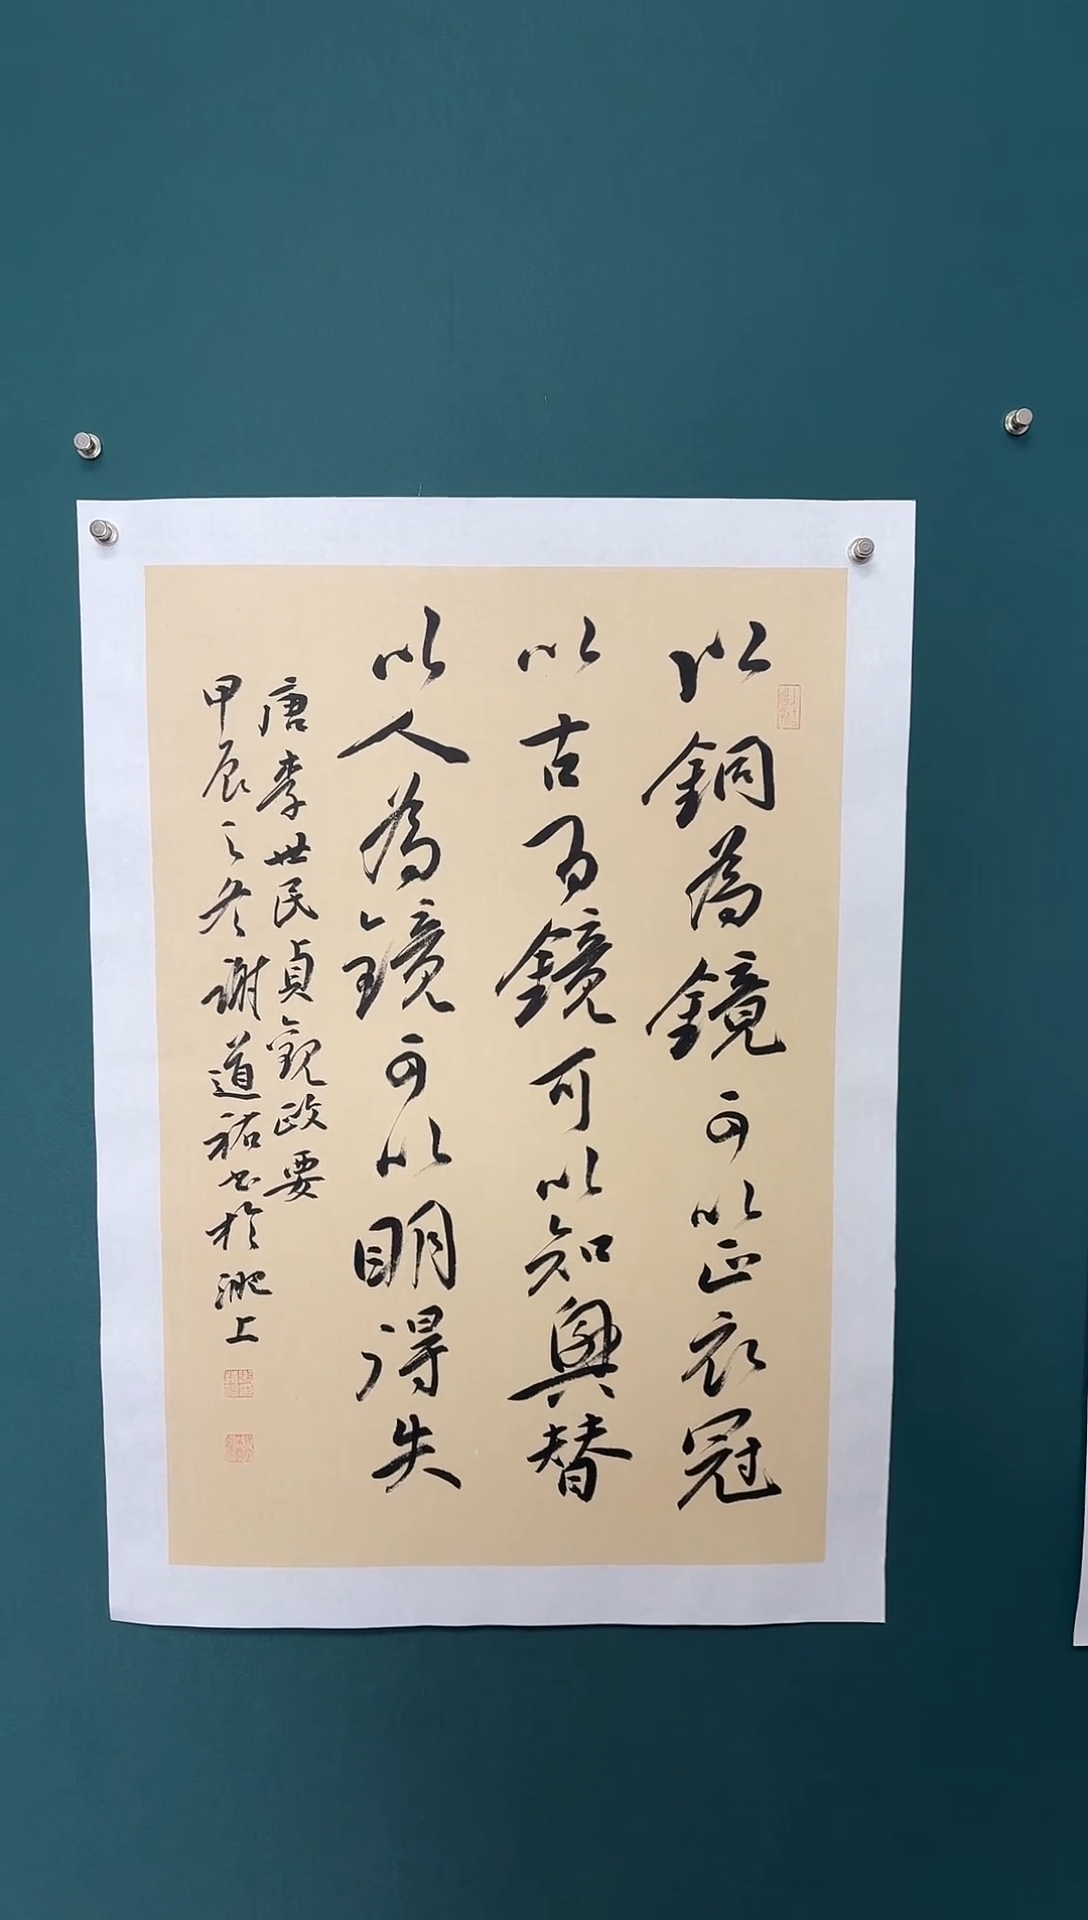 以銅為鏡可以正衣冠
以古為鏡可以知興替
以人為鏡可以明得失
唐李世民貞觀政要
甲辰之冬謝道祐書於淝上